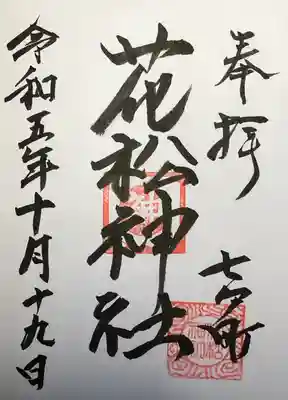 奉拝
七戸町
花松神社
令和五年十月十九日